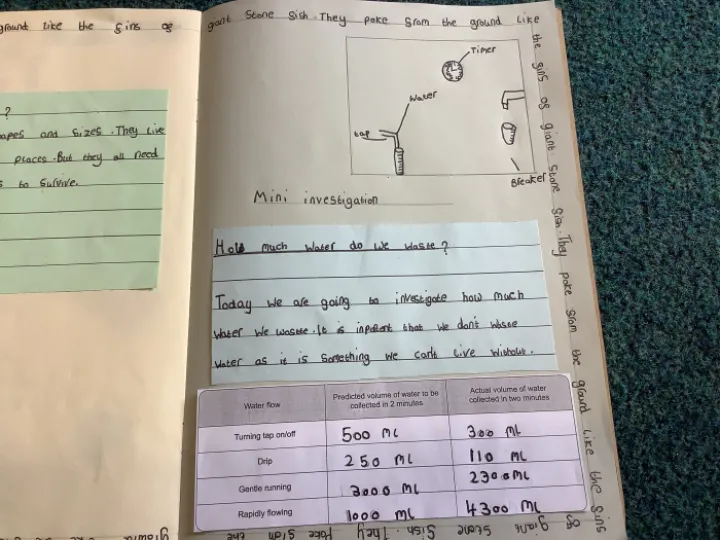 ground like the gins og
gant Stone Sish. They poke Srom the ground like
the gins og giant. Stone Sish. They poke srom the ground like the gins
og giant stone Sish. They poke srom the
growing
?
apes and sizes. They live
places. But they all need
s to survive.
Timer
Water
tap
Breaker
Mini investigation
How much water do we waste?
Today we are going to investigate how much
water we wasste. It is inportent that we don't waste
water as it is something we can't live without.
Water flow Predicted volume of water to be collected in 2 minutes Actual volume of water collected in two minutes
Turning tap on/off 500 ML 300 ML
Drip 250 ML 110 ML
Gentle running 3000 ML 2300 ML
Rapidly flowing 1000 ML 4300 ML